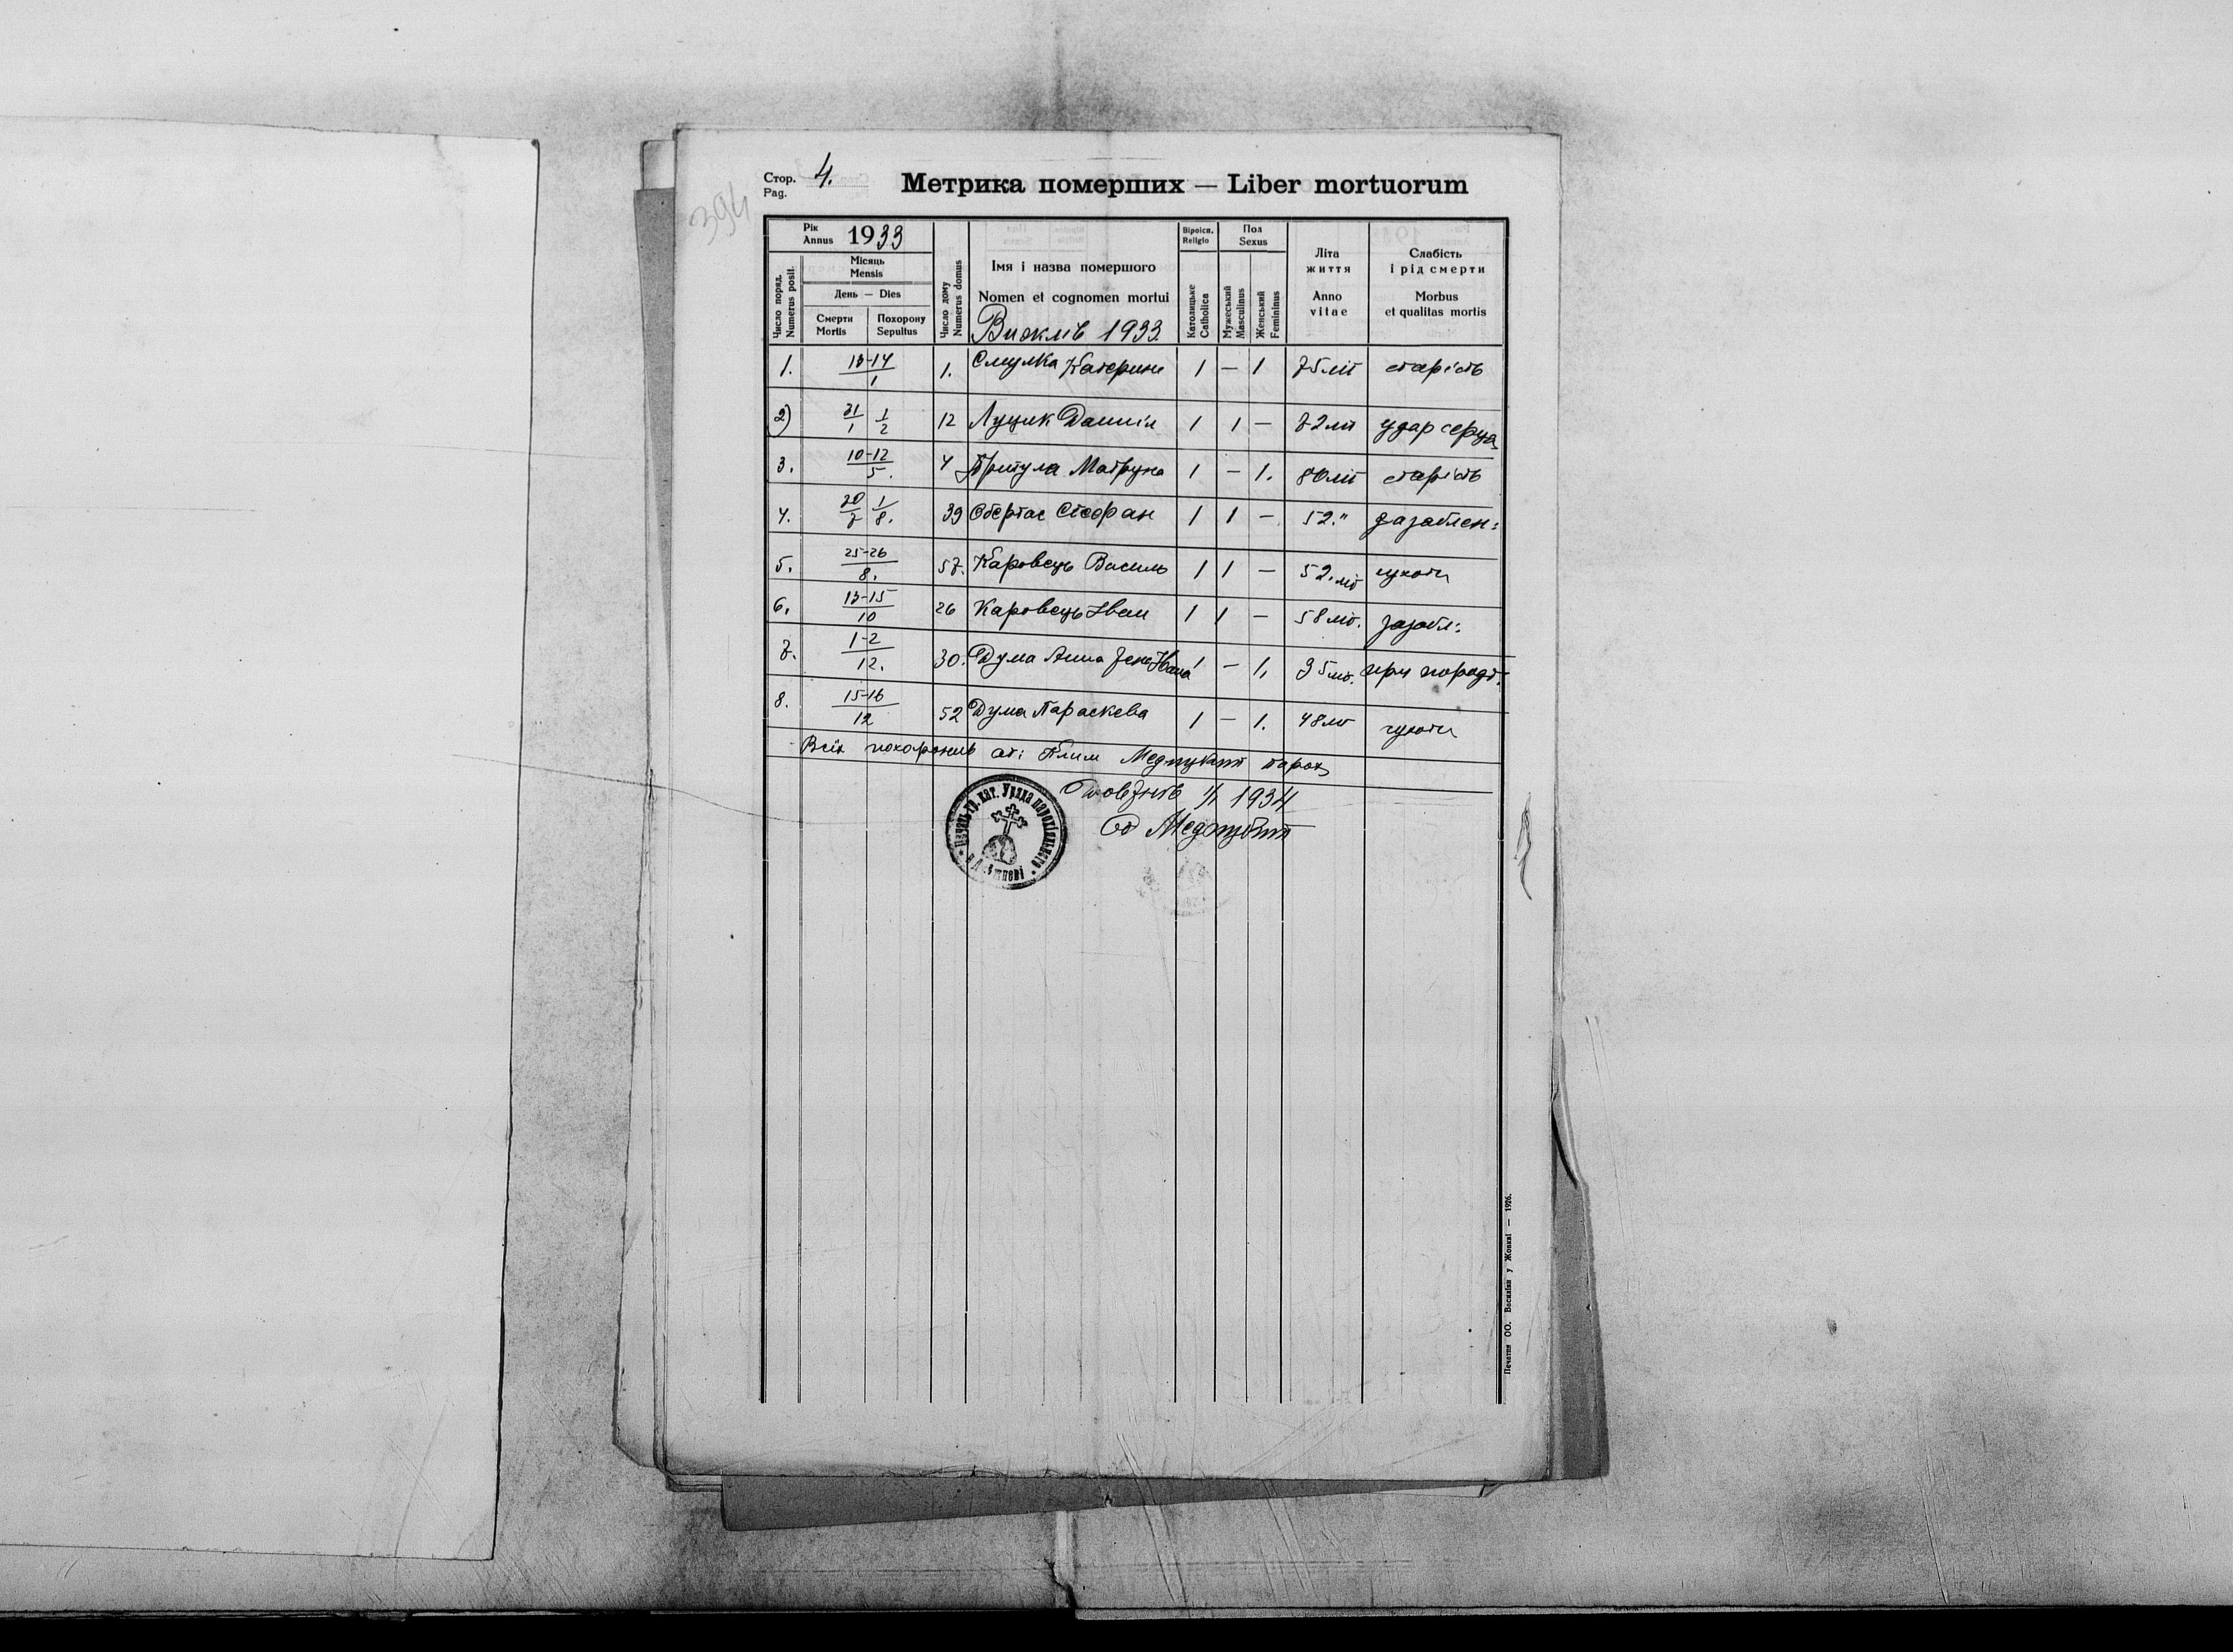 Стор. 4.
Pag.
Метрика померших — Liber mortuorum
394
Рік
Annus 1933
Місяць
Mensis
День — Dies
Смерти
Mortis
Похорону
Sepultus
Число поряд.
Numerus posit.
Число дому
Numerus domus
Імя і назва помершого
Nomen et cognomen mortui
Вижлів 1933
Віроісп.
Religio
Католицьке
Catholica
Пол
Sexus
Мужеський
Masculinus
Женський
Femininus
Літа
життя
Anno
vitae
Слабість
і рід смерти
Morbus
et qualitas mortis
1. 13-14/1 1. Катерина 1 — 1 75 літ старість
2) 31/1 1/2 12 Луцик Данило 1 1 — 72 літ удар серця
3. 10-12/5. 4 Притула Матрина 1 — 1. 80 літ старість
4. 1/8. 39 Обертас Стефан 1 1 — 52. "
5. 25-26/8. 57. Каровець Василь 1 1 — 52. літ сухоти
6. 13-15/10 26 Каровець Іван 1 1 — 58 літ.
7. 1-2/12. 30. Дума Анна жена Івана 1 — 1. 35 літ. при породі
8. 15-16/12 52 Дума Параскева 1 — 1. 48 літ сухоти
Всіх похоронив от: Клим парох
1/1 1934
Печать гр. кат. Уряда парохіяльного
Печатня ОО. Василіян у Жовкві — 1926.